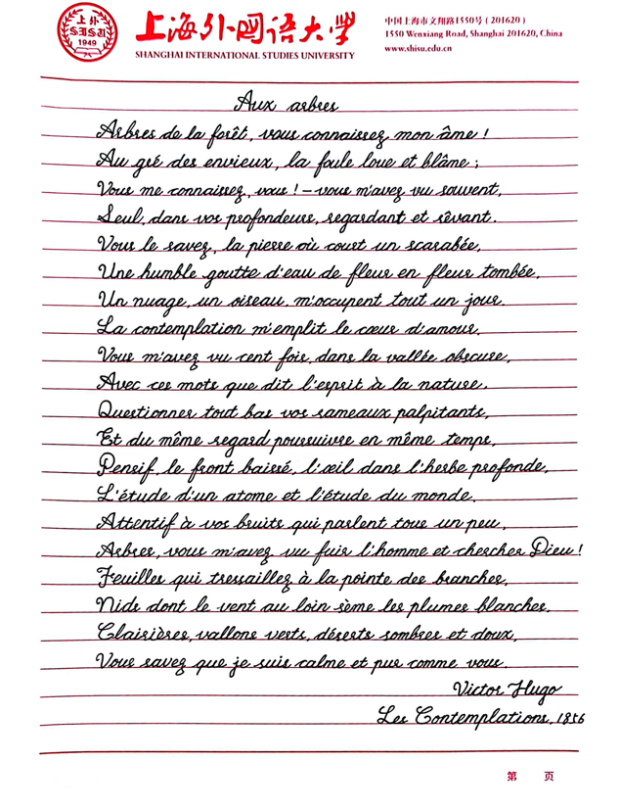 上外
SISU
1949
上海外国语大学
SHANGHAI INTERNATIONAL STUDIES UNIVERSITY
中国上海市文翔路1550号（201620）
1550 Wenxiang Road, Shanghai 201620, China
www.shisu.edu.cn
Aux arbres
Arbres de la forêt, vous connaissez mon âme !
Au gré des envieux, la foule loue et blâme ;
Vous me connaissez, vous ! – vous m'avez vu souvent,
Seul, dans vos profondeurs, regardant et rêvant.
Vous le savez, la pierre où court un scarabée,
Une humble goutte d'eau de fleur en fleur tombée,
Un nuage, un oiseau, m'occupent tout un jour.
La contemplation m'emplit le cœur d'amour.
Vous m'avez vu cent fois, dans la vallée obscure,
Avec ces mots que dit l'esprit à la nature,
Questionner tout bas vos rameaux palpitants,
Et du même regard poursuivre en même temps,
Pensif, le front baissé, l'œil dans l'herbe profonde,
L'étude d'un atome et l'étude du monde.
Attentif à vos bruits qui parlent tous un peu,
Arbres, vous m'avez vu fuir l'homme et chercher Dieu !
Feuilles qui tressaillez à la pointe des branches,
Nids dont le vent au loin sème les plumes blanches,
Clairières, vallons verts, déserts sombres et doux,
Vous savez que je suis calme et pur comme vous.
Victor Hugo
Les Contemplations, 1856
第 页